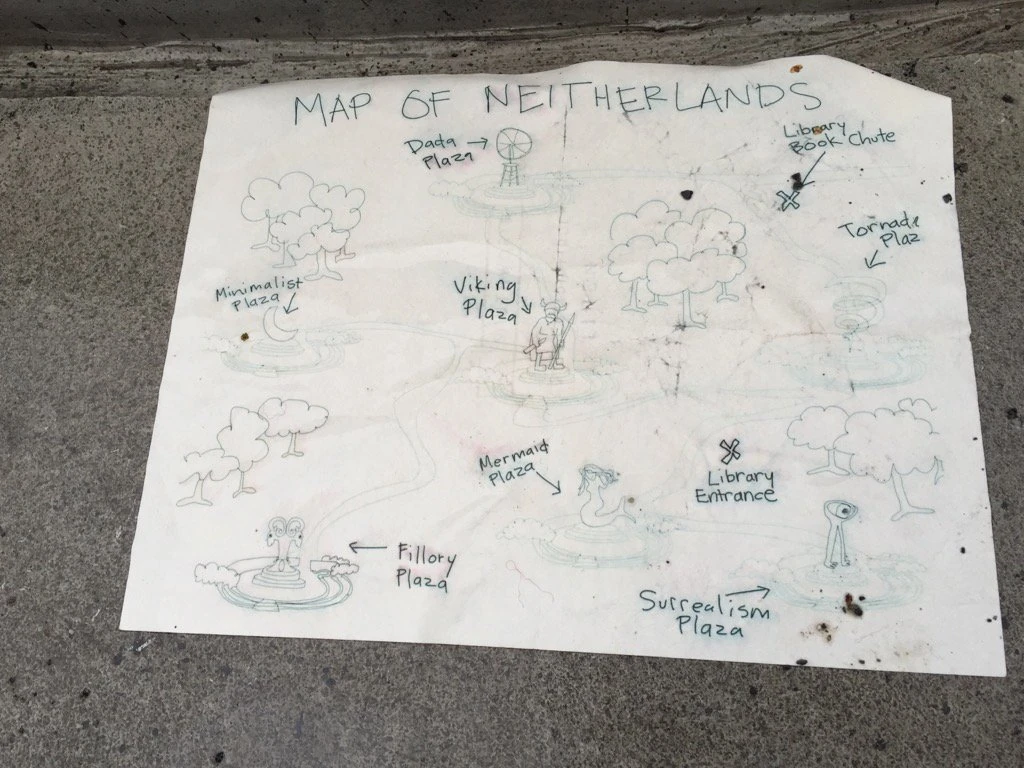 MAP OF NEITHERLANDS
Dada
Plaza
Library
Book Chute
Tornado
Plaz
Minimalist
Plaza
Viking
Plaza
Mermaid
Plaza
Library
Entrance
Fillory
Plaza
Surrealism
Plaza